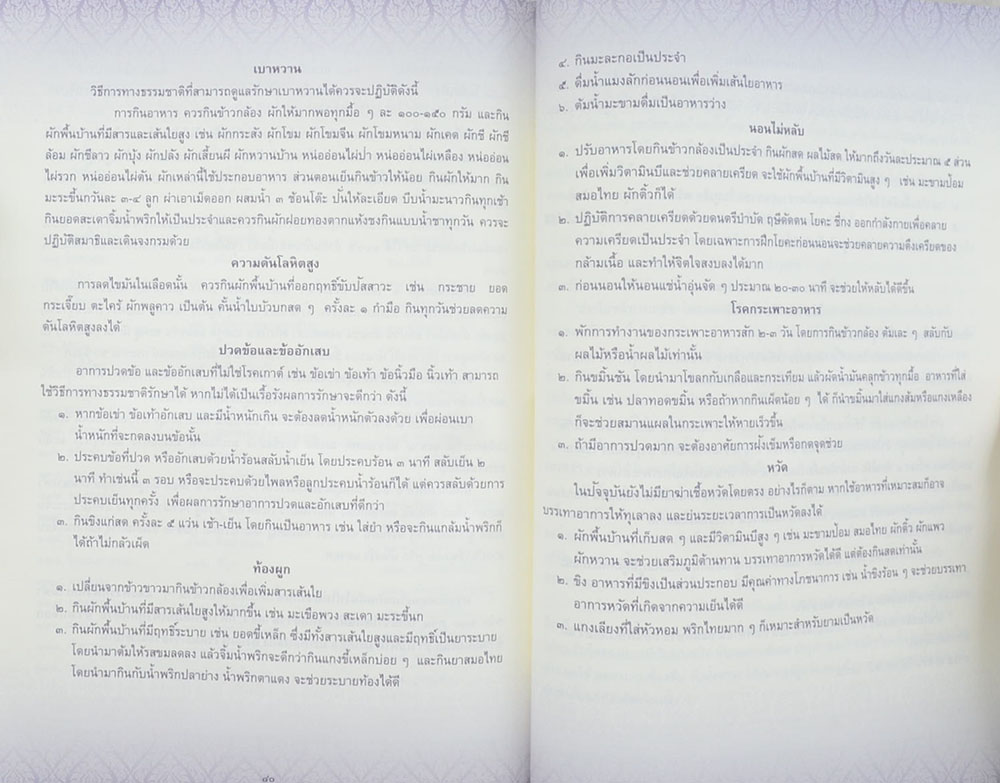 เบาหวาน
วิธีการทางธรรมชาติที่สามารถดูแลรักษาเบาหวานได้ควรจะปฏิบัติดังนี้
การกินอาหาร ควรกินข้าวกล้อง ผักให้มากพอทุกมื้อ ๆ ละ ๑๐๐-๑๕๐ กรัม และกิน
ผักพื้นบ้านที่มีสารและเส้นใยสูง เช่น ผักกระสัง ผักโขม ผักโขมจีน ผักโขมหนาม ผักเคด ผักชี ผักชี
ล้อม ผักชีลาว ผักบุ้ง ผักปลัง ผักเสี้ยนผี ผักหวานบ้าน หน่ออ่อนไผ่ป่า หน่ออ่อนไผ่เหลือง หน่ออ่อน
ไผ่รวก หน่ออ่อนไผ่ตัน ผักเหล่านี้ใช้ประกอบอาหาร ส่วนตอนเย็นกินข้าวให้น้อย กินผักให้มาก กิน
มะระขี้นกวันละ ๓-๔ ลูก ผ่าเอาเม็ดออก ผสมน้ำ ๓ ช้อนโต๊ะ ปั่นให้ละเอียด บีบน้ำมะนาวกินทุกเช้า
กินยอดสะเดาจิ้มน้ำพริกให้เป็นประจำและควรกินผักฝอยทองตากแห้งชงกินแบบน้ำชาทุกวัน ควรจะ
ปฏิบัติสมาธิและเดินจงกรมด้วย
ความดันโลหิตสูง
การลดไขมันในเลือดนั้น ควรกินผักพื้นบ้านที่ออกฤทธิ์ขับปัสสาวะ เช่น กระชาย ยอด
กระเจี๊ยบ ตะไคร้ ผักพลูคาว เป็นต้น คั้นน้ำใบบัวบกสด ๆ ครั้งละ ๑ กำมือ กินทุกวันช่วยลดความ
ดันโลหิตสูงลงได้
ปวดข้อและข้ออักเสบ
อาการปวดข้อ และข้ออักเสบที่ไม่ใช่โรคเกาต์ เช่น ข้อเข่า ข้อเท้า ข้อนิ้วมือ นิ้วเท้า สามารถ
ใช้วิธีการทางธรรมชาติรักษาได้ หากไม่ได้เป็นเรื้อรังผลการรักษาจะดีกว่า ดังนี้
๑. หากข้อเข่า ข้อเท้าอักเสบ และมีน้ำหนักเกิน จะต้องลดน้ำหนักตัวลงด้วย เพื่อผ่อนเบา
น้ำหนักที่จะกดลงบนข้อนั้น
๒. ประคบข้อที่ปวด หรืออักเสบด้วยน้ำร้อนสลับน้ำเย็น โดยประคบร้อน ๓ นาที สลับเย็น ๒
นาที ทำเช่นนี้ ๓ รอบ หรือจะประคบด้วยไพลหรือลูกประคบน้ำร้อนก็ได้ แต่ควรสลับด้วยการ
ประคบเย็นทุกครั้ง เพื่อผลการรักษาอาการปวดและอักเสบที่ดีกว่า
๓. กินขิงแก่สด ครั้งละ ๕ แว่น เช้า-เย็น โดยกินเป็นอาหาร เช่น ใส่ยำ หรือจะกินแกล้มน้ำพริกก็
ได้ถ้าไม่กลัวเผ็ด
ท้องผูก
๑. เปลี่ยนจากข้าวขาวมากินข้าวกล้องเพื่อเพิ่มสารเส้นใย
๒. กินผักพื้นบ้านที่มีสารเส้นใยสูงให้มากขึ้น เช่น มะเขือพวง สะเดา มะระขี้นก
๓. กินผักพื้นบ้านที่มีฤทธิ์ระบาย เช่น ยอดขี้เหล็ก ซึ่งมีทั้งสารเส้นใยสูงและมีฤทธิ์เป็นยาระบาย
โดยนำมาต้มให้รสขมลดลง แล้วจิ้มน้ำพริกจะดีกว่ากินแกงขี้เหล็กบ่อย ๆ และกินยาสมอไทย
โดยนำมากินกับน้ำพริกปลาย่าง น้ำพริกตาแดง จะช่วยระบายท้องได้ดี
๔๐
๔. กินมะละกอเป็นประจำ
๕. ดื่มน้ำแมงลักก่อนนอนเพื่อเพิ่มเส้นใยอาหาร
๖. ต้มน้ำมะขามดื่มเป็นอาหารว่าง
นอนไม่หลับ
๑. ปรับอาหารโดยกินข้าวกล้องเป็นประจำ กินผักสด ผลไม้สด ให้มากถึงวันละประมาณ ๕ ส่วน
เพื่อเพิ่มวิตามินบีและช่วยคลายเครียด จะใช้ผักพื้นบ้านที่มีวิตามินสูง ๆ เช่น มะขามป้อม
สมอไทย ผักติ้วก็ได้
๒. ปฏิบัติการคลายเครียดด้วยดนตรีบำบัด ฤษีดัดตน โยคะ ชี่กง ออกกำลังกายเพื่อคลาย
ความเครียดเป็นประจำ โดยเฉพาะการฝึกโยคะก่อนนอนจะช่วยคลายความตึงเครียดของ
กล้ามเนื้อ และทำให้จิตใจสงบลงได้มาก
๓. ก่อนนอนให้นอนแช่น้ำอุ่นจัด ๆ ประมาณ ๒๐-๓๐ นาที จะช่วยให้หลับได้ดีขึ้น
โรคกระเพาะอาหาร
๑. พักการทำงานของกระเพาะอาหารสัก ๒-๓ วัน โดยการกินข้าวกล้อง ต้มเละ ๆ สลับกับ
ผลไม้หรือน้ำผลไม้เท่านั้น
๒. กินขมิ้นชัน โดยนำมาโขลกกับเกลือและกระเทียม แล้วผัดน้ำมันคลุกข้าวทุกมื้อ อาหารที่ใส่
ขมิ้น เช่น ปลาทอดขมิ้น หรือถ้าหากกินเผ็ดน้อย ๆ ได้ ก็นำขมิ้นมาใส่แกงส้มหรือแกงเหลือง
ก็จะช่วยสมานแผลในกระเพาะให้หายเร็วขึ้น
๓. ถ้ามีอาการปวดมาก จะต้องอาศัยการฝังเข็มหรือกดจุดช่วย
หวัด
ในปัจจุบันยังไม่มียาฆ่าเชื้อหวัดโดยตรง อย่างไรก็ตาม หากใช้อาหารที่เหมาะสมก็อาจ
บรรเทาอาการให้ทุเลาลง และย่นระยะเวลาการเป็นหวัดลงได้
๑. ผักพื้นบ้านที่เก็บสด ๆ และมีวิตามินบีสูง ๆ เช่น มะขามป้อม สมอไทย ผักติ้ว ผักแพว
ผักหวาน จะช่วยเสริมภูมิต้านทาน บรรเทาอาการหวัดได้ดี แต่ต้องกินสดเท่านั้น
๒. ขิง อาหารที่มีขิงเป็นส่วนประกอบ มีคุณค่าทางโภชนาการ เช่น น้ำขิงร้อน ๆ จะช่วยบรรเทา
อาการหวัดที่เกิดจากความเย็นได้ดี
๓. แกงเลียงที่ใส่หัวหอม พริกไทยมาก ๆ ก็เหมาะสำหรับยามเป็นหวัด